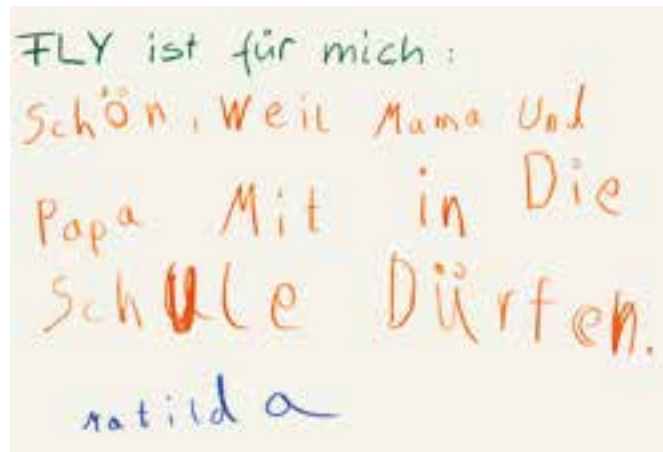 FLY ist für mich:
Schön, Weil Mama Und
Papa Mit in Die
Schule Dürfen.
Matilda